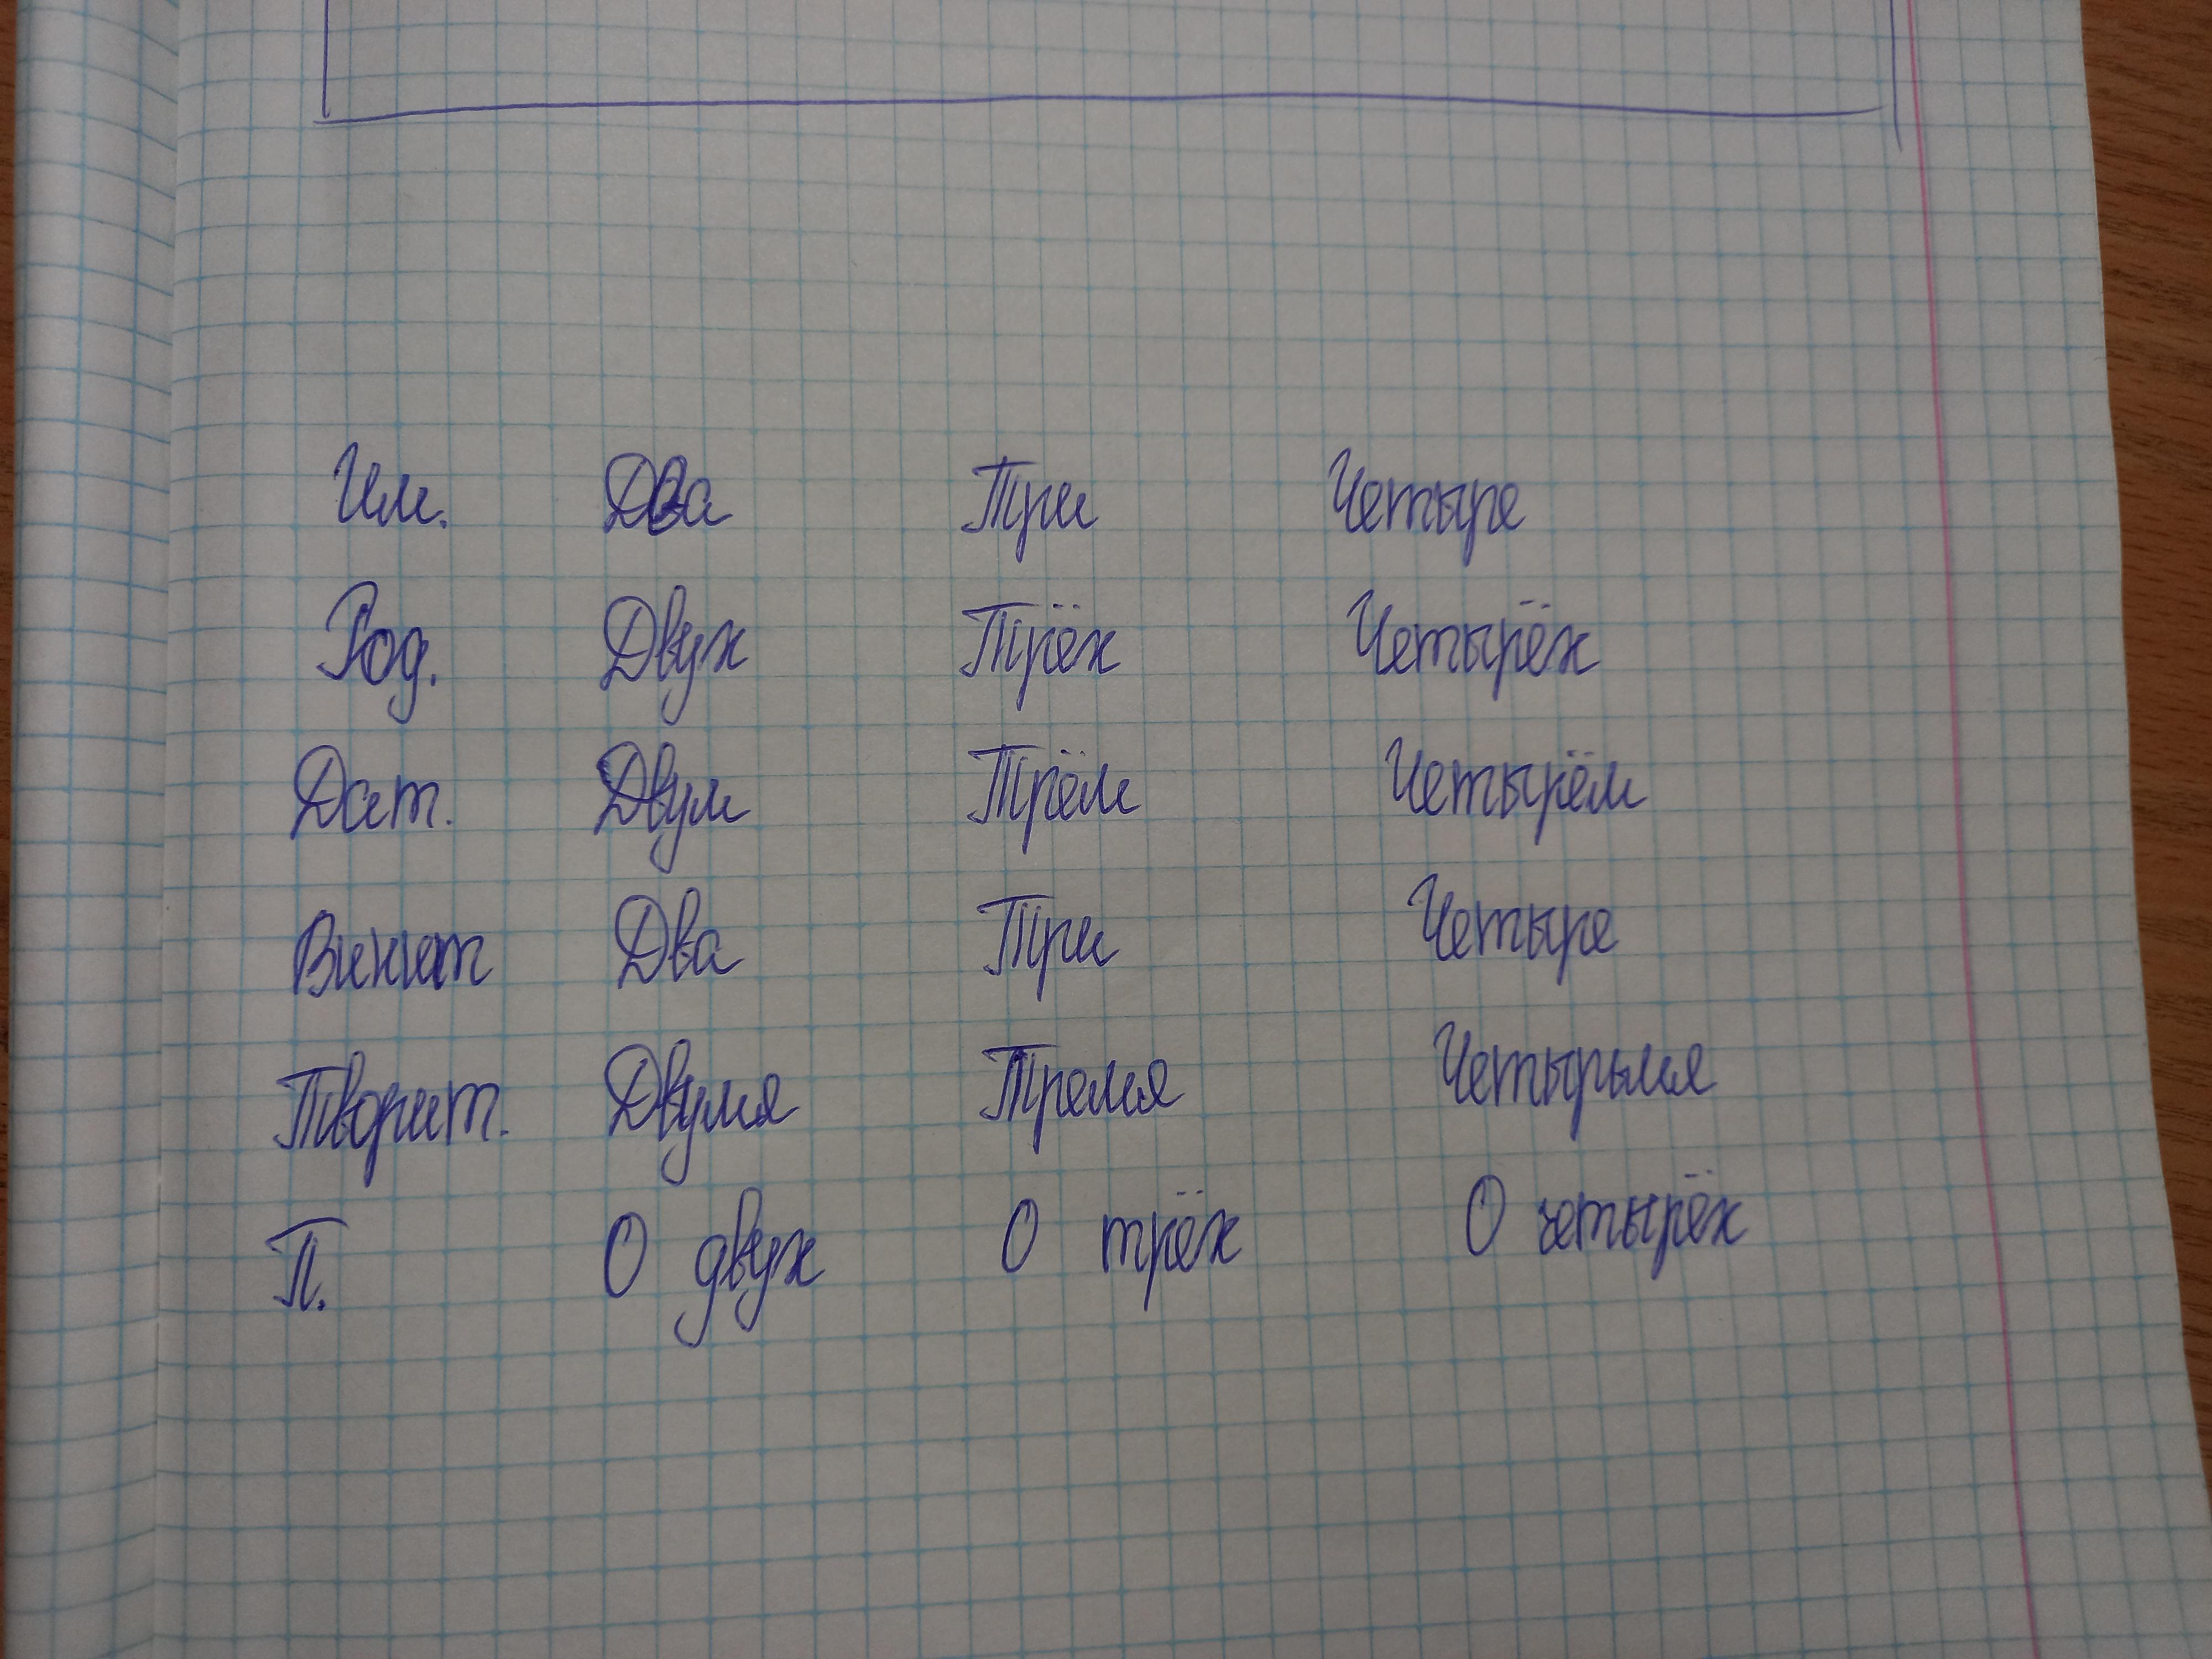 Им. Два Три Четыре
Род. Двух Трёх Четырёх
Дат. Двум Трём Четырём
Винит Два Три Четыре
Творит. Двумя Тремя Четырьмя
П. О двух О трёх О четырёх